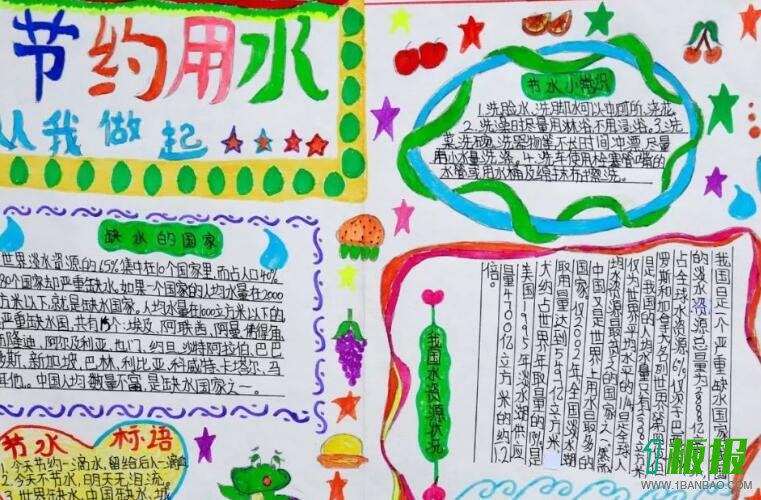 节约用水
从我做起
缺水的国家
世界淡水资源的65%集中在10个国家里,而占人口40%
80个国家却严重缺水,如果一个国家的人均水量在2000
方米以下,就是缺水国家。人均水量在1000立方米以下的
严重缺水国,共有15个:埃及、阿联酋、阿曼
隆迪、阿尔及利亚、也门、约旦、沙特阿拉伯、巴巴
新加坡、巴林、利比亚、科威特、卡塔尔、马
中国人均数量不富,是缺水国家之一。
节水 标语
1、今天节约一滴水,留给后人一滴血
2、今天不节水,明天无泪流。
3、世界缺水、中国缺水、城
节水小常识
1.洗脸水、洗脚水可以冲厕所、浇花。
2.洗澡时尽量用淋浴不用浸浴。3.洗
菜、洗碗、洗器物等不长时间冲漂,尽量
用小水量洗涤。4.洗车使用栓塞管嘴的
水管或用水桶及给抹布擦洗。
我国水资源状况
我国是一个严重缺水国家
的淡水资源总量为
占全球水资源的6%,仅次于巴西
罗斯和加拿大,名列世界第四
但是我国的人均水量只有2300
仅为世界平均水平的1/4,是全球人
均水资源最贫乏的国家之一。然而
中国又是世界上用水量最多的
国家。仅2002年全国淡水
取用量达到5497亿立方米
大约占世界年取量的13%,是
美国1995年淡水
量4700亿立方米的约
倍。
板报
WWW.1BANBAO.COM